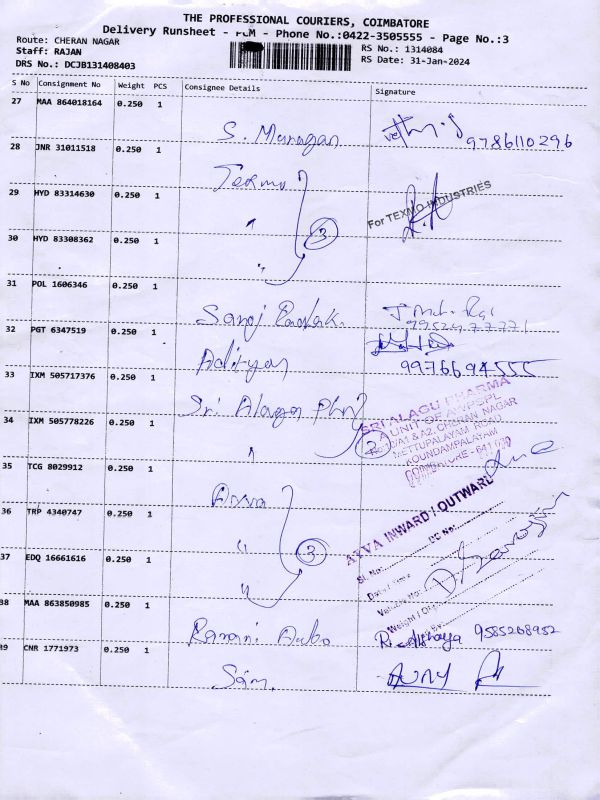 THE PROFESSIONAL COURIERS, COIMBATORE
Delivery Runsheet - PCM - Phone No.:0422-3505555 - Page No.:3
Route: CHERAN NAGAR
RS No.: 1314084
Staff: RAJAN
RS Date: 31-Jan-2024
DRS No.: DCJB131408403
S No Consignment No Weight PCS Consignee Details Signature
27 MAA 864018164 0.250 1 S. Murugan 9786110296
28 JNR 31011518 0.250 1 Texmo
29 HYD 83314630 0.250 1 " 3 For TEXMO INDUSTRIES
30 HYD 83308362 0.250 1 "
31 POL 1606346 0.250 1 Saroj
32 PGT 6347519 0.250 1 Adityan 9976694555
33 IXM 505717376 0.250 1 Sri Alagu
SRI ALAGU PHARMA
A UNIT OF
CHERAN NAGAR
METTUPALAYAM ROAD
KOUNDAMPALAYAM
COIMBATORE - 641 030
34 IXM 505778226 0.250 1 " 2
35 TCG 8029912 0.250 1 Ayva
AYVA INWARD / OUTWARD
Sl. No:
DC No:
Date / Time
Vehicle No:
Weight / Qty
36 TRP 4340747 0.250 1 "
37 EDQ 16661616 0.250 1 " 3
38 MAA 863850985 0.250 1 Ranani Auto 9585268952
39 CNR 1771973 0.250 1 Sam.